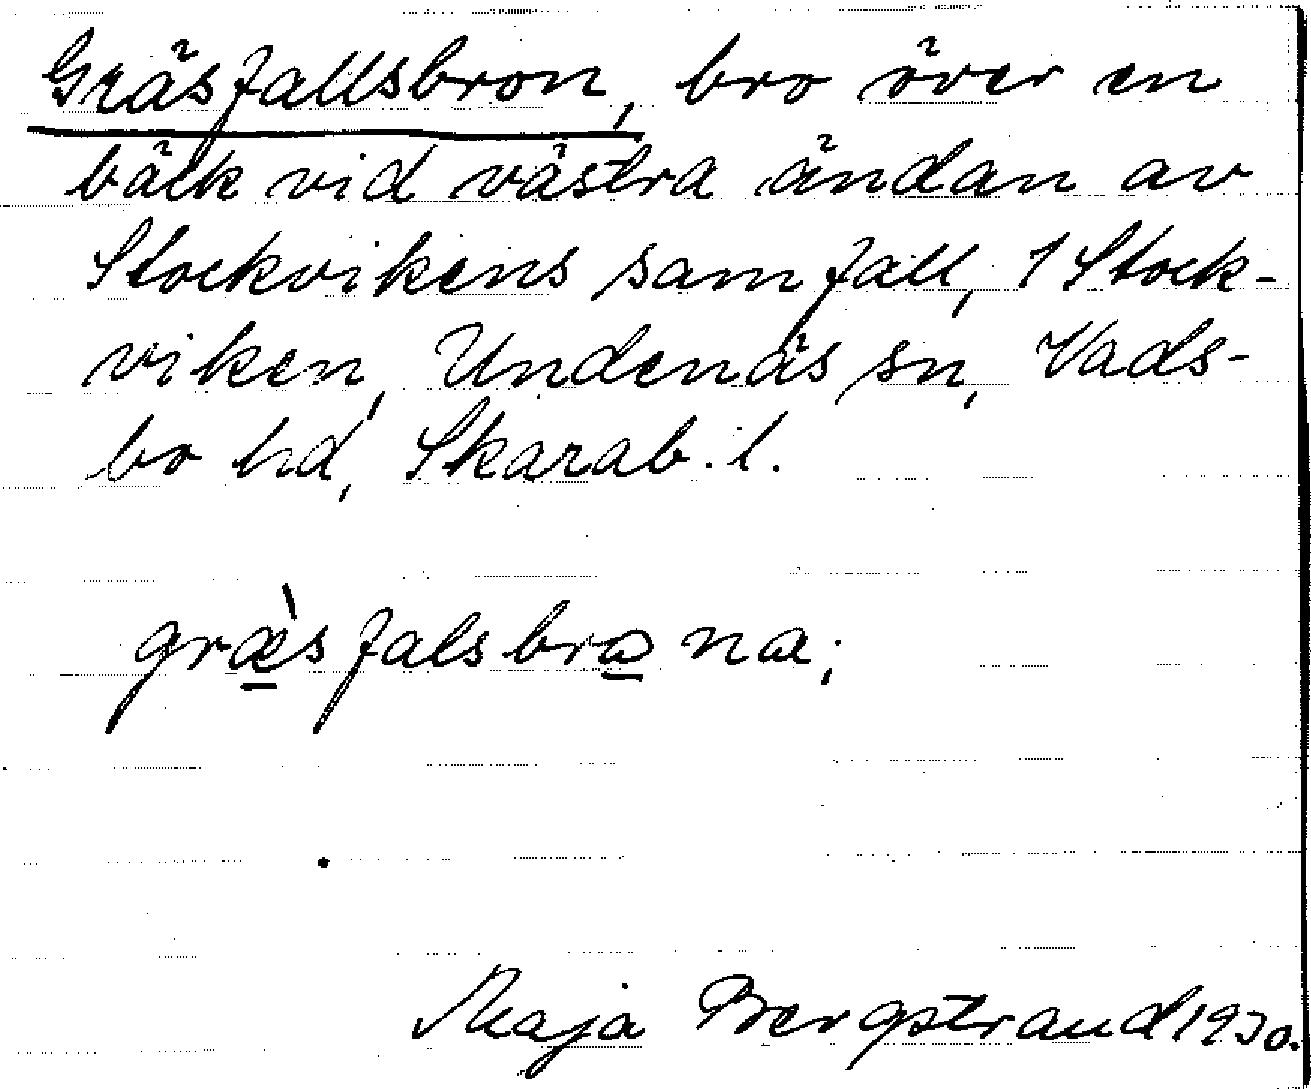 Gräsfallsbron, bro över en
bäck vid västra ändan av
Stockvikens samfäll, 1 Stock-
viken, Undenäs sn, Vads-
bo hd, Skarab. l.
græ̀sfalsbrona;
Maja Bergstrand 1930.